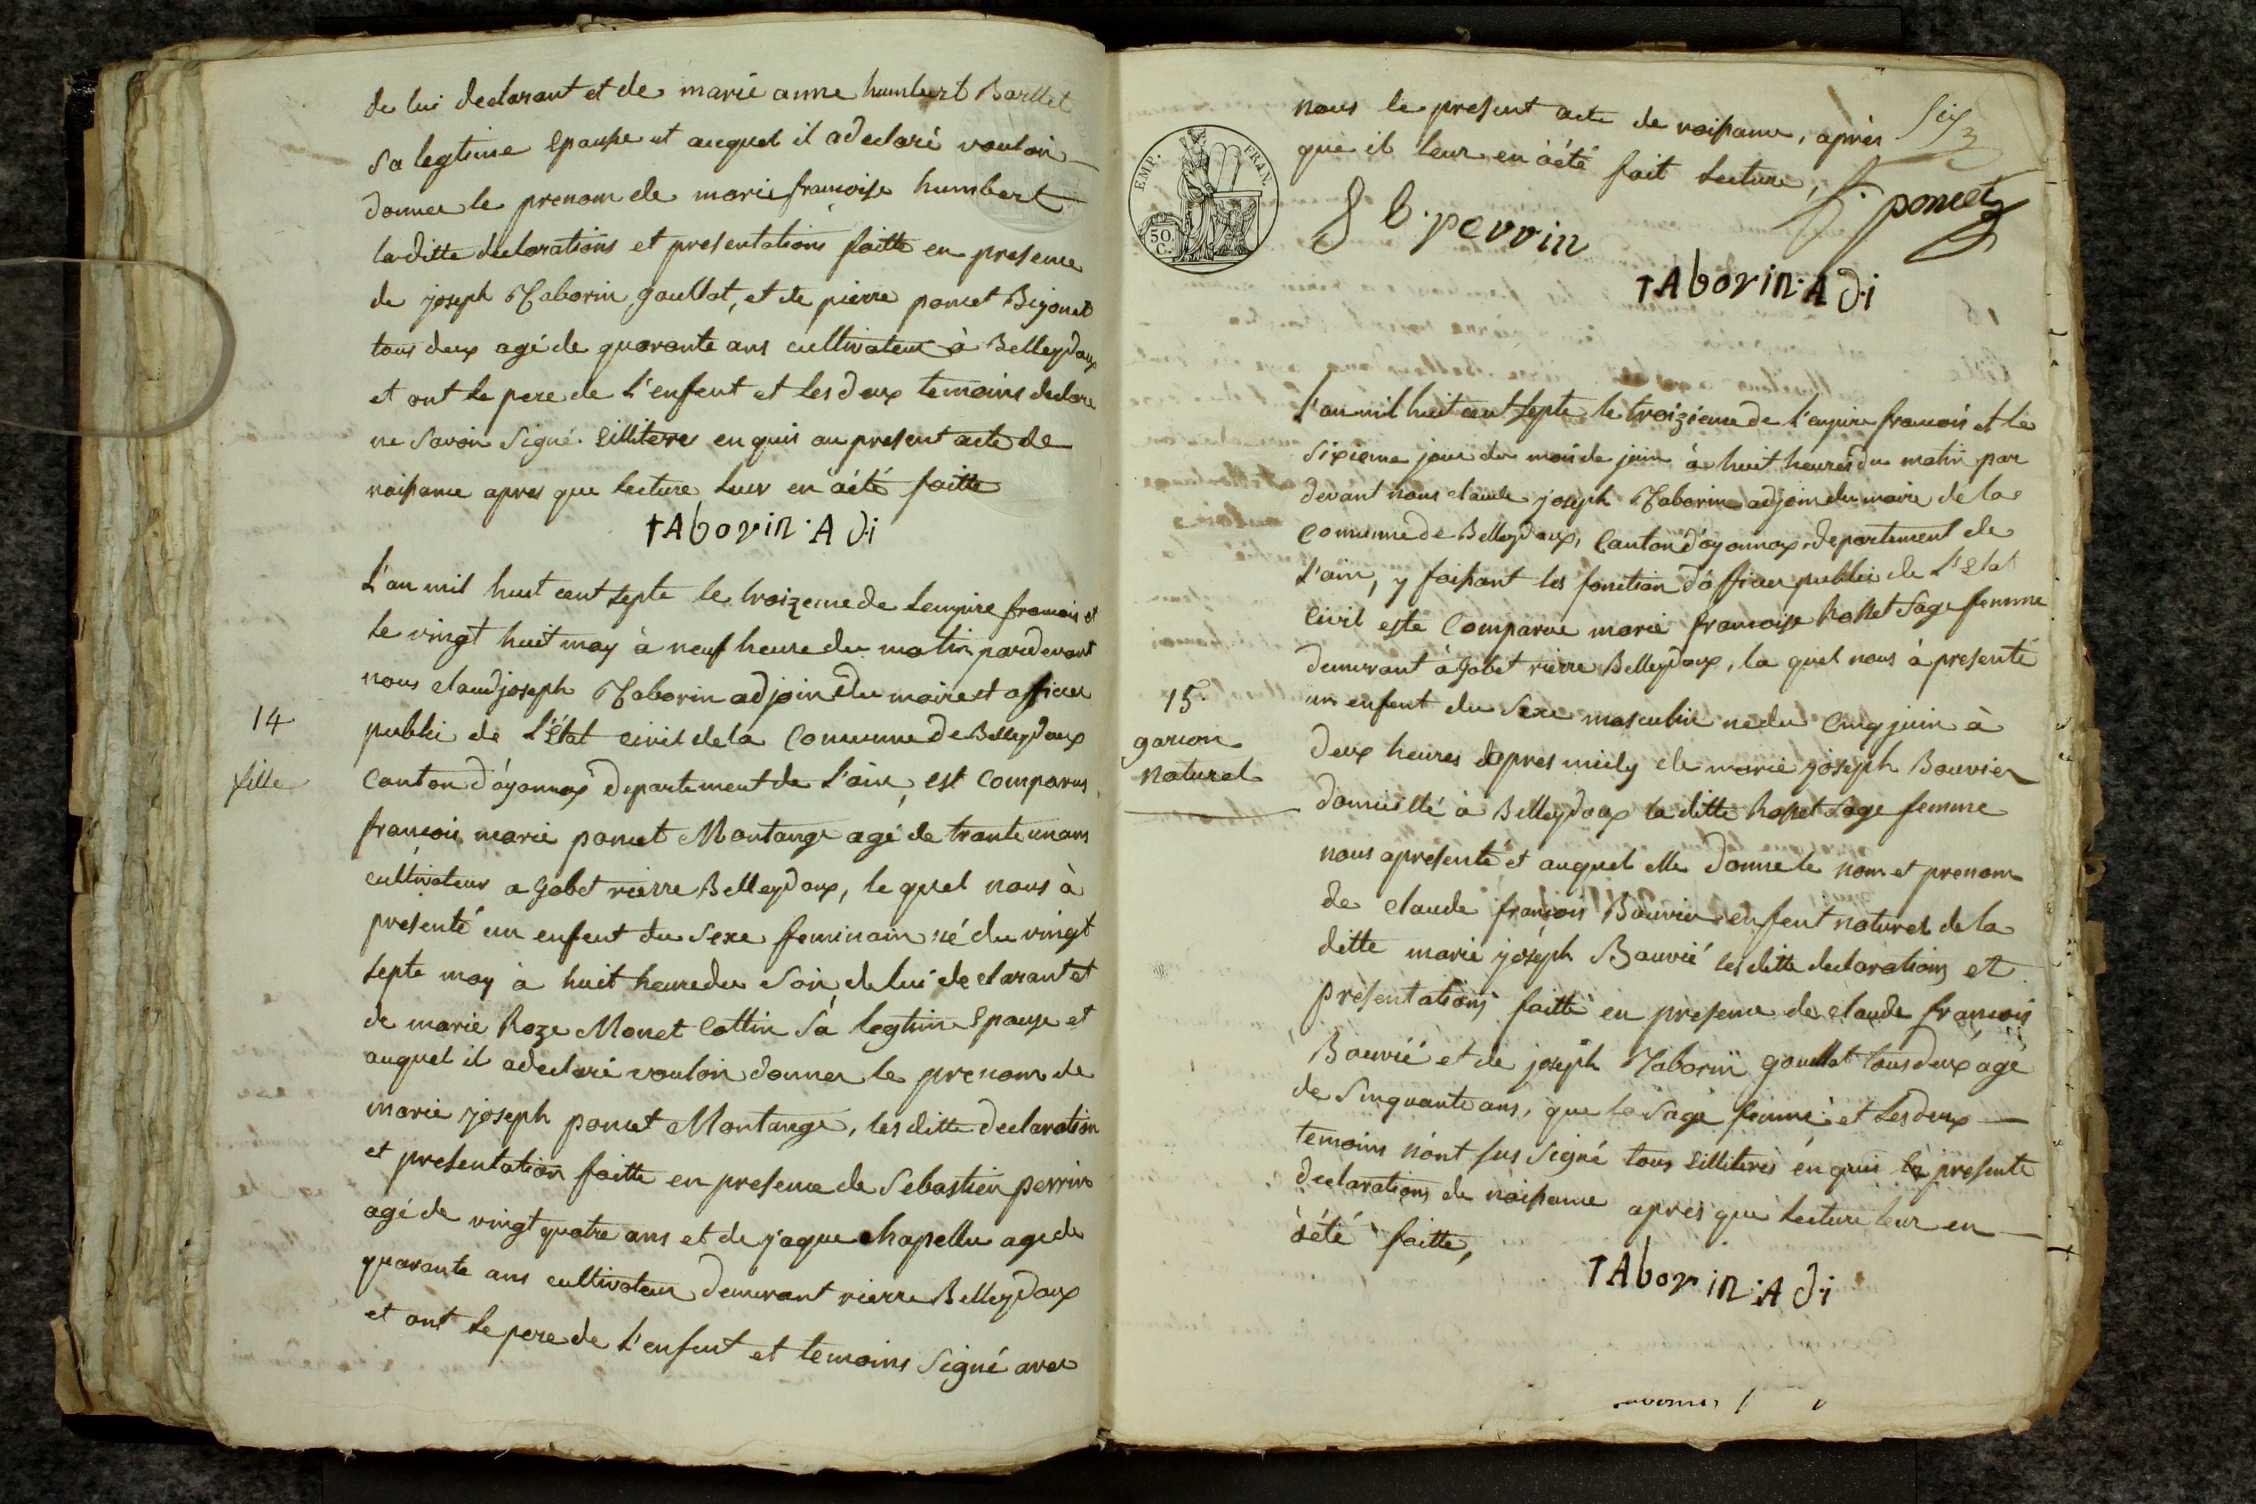 de lui declarant et de marie anne humbert Barllet
sa legtime Epouse et auquel il a declaré vouloir
donner le prenom de marie françoise humbert
laditte declarations et presentations faitte en presence
de joseph Taborin gaullat, et de pierre poncet Bijouet
tous deux agé de quarante ans cultivateur à Belleydoux
et ont le pere de l'enfent et les deux temoins declare
ne savoir signé. Eilliteres enquis au present acte de
naissance apres que lecture leur en à été faitte
TAborin: A di
14
fille
L'an mil huit cent septe le troizeme de lempire francois et
le vingt huit may à neuf heure du matin pardevant
nous claudjoseph Taborin adjoint du maire et officier
public de l'Etat civil de la Commune de Belleydoux
Canton d'oyonnax departement de l'ain, est Comparus
francois marie poncet Montange agé de trante un ans
cultivateur a Gobet rierre Belleydoux, le quel nous à
presenté un enfent du sexe feminain né du vingt
septe may à huit heure du soir de lui declarant et
de marie Roze Monet Cottin sa legtime Epouse et
auquel il a declaré vouloir donner le prenom de
marie joseph poncet Montange, les ditte declaration
et presentation faitte en presence de Sebastien perrin
agé de vingt quatre ans et de jaque chapellu agé de
quarante ans cultivateur demurant rierre Belleydoux
et ont le pere de l'enfent et temoins signé avec
Six
nous le present acte de naissance, après
que il leur en à été fait lecture,
EMP. FRAN.
50 C.
S b. perrin
f. poncet
TAborin: A di
15
garcon
naturel
L'an mil huit cent septe le troizieme de l'empire francois et le
sixieme jour du mois de juin à huit heures du matin par
devant nous claude joseph Taborin adjoin du maire de la
Commune de Belleydoux, Canton d'oyonnax departement de
l'ain, y faissant les fonction d'officier public de l'Etat
Civil este Comparue marie francoise Rosset sage femme
demurant à Gobet rierre Belleydoux, la quel nous à presenté
un enfent du sexe masculin ne du Cinq juin à
deux heures d'apres midy de marie joseph Bouvier
domicillé à Belleydoux la ditte Rosset sage femme
nous apresenté et auquel elle donne le nom et prenom
de claude françois Bouvier enfent naturel de la
ditte marie joseph Bouvié les ditte declarations et
presentations faitte en presence de claude francois
Bouvié et de joseph Taborin gaullat tous deux agé
de sinquante ans, que la sage femme et les deux
temoins nont sus signé tous Eilliteres enquis la presente
declarations de naissance apres que lecture leur en
à été faitte,
TAborin: A di